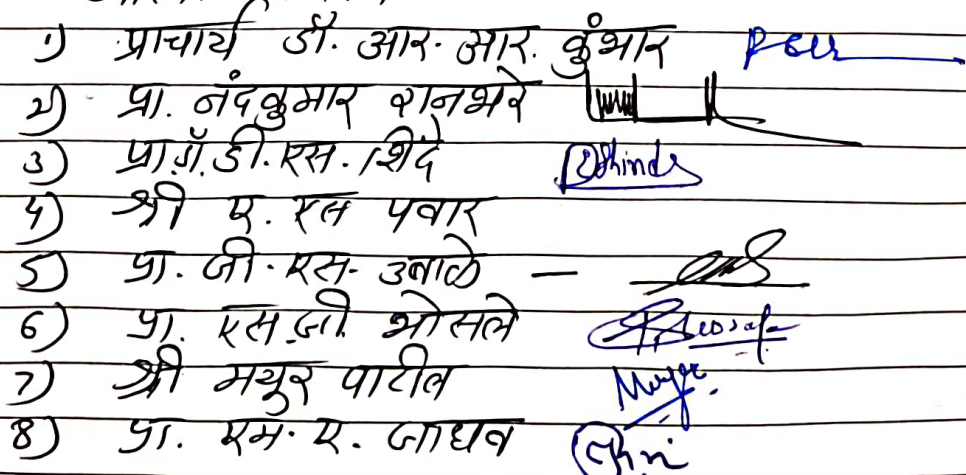 1) प्राचार्य डॉ. आर. आर. कुंभार
2) प्रा. नंदकुमार रानभरे
3) प्रा.डॉ. डी. एस. शिंदे Dshinde
4) श्री ए. एस पवार
5) प्रा. जी. एस. उबाळे -
6) प्रा. एस.जी. भोसले
7) श्री मयुर पाटील
8) प्रा. एम. ए. जाधव